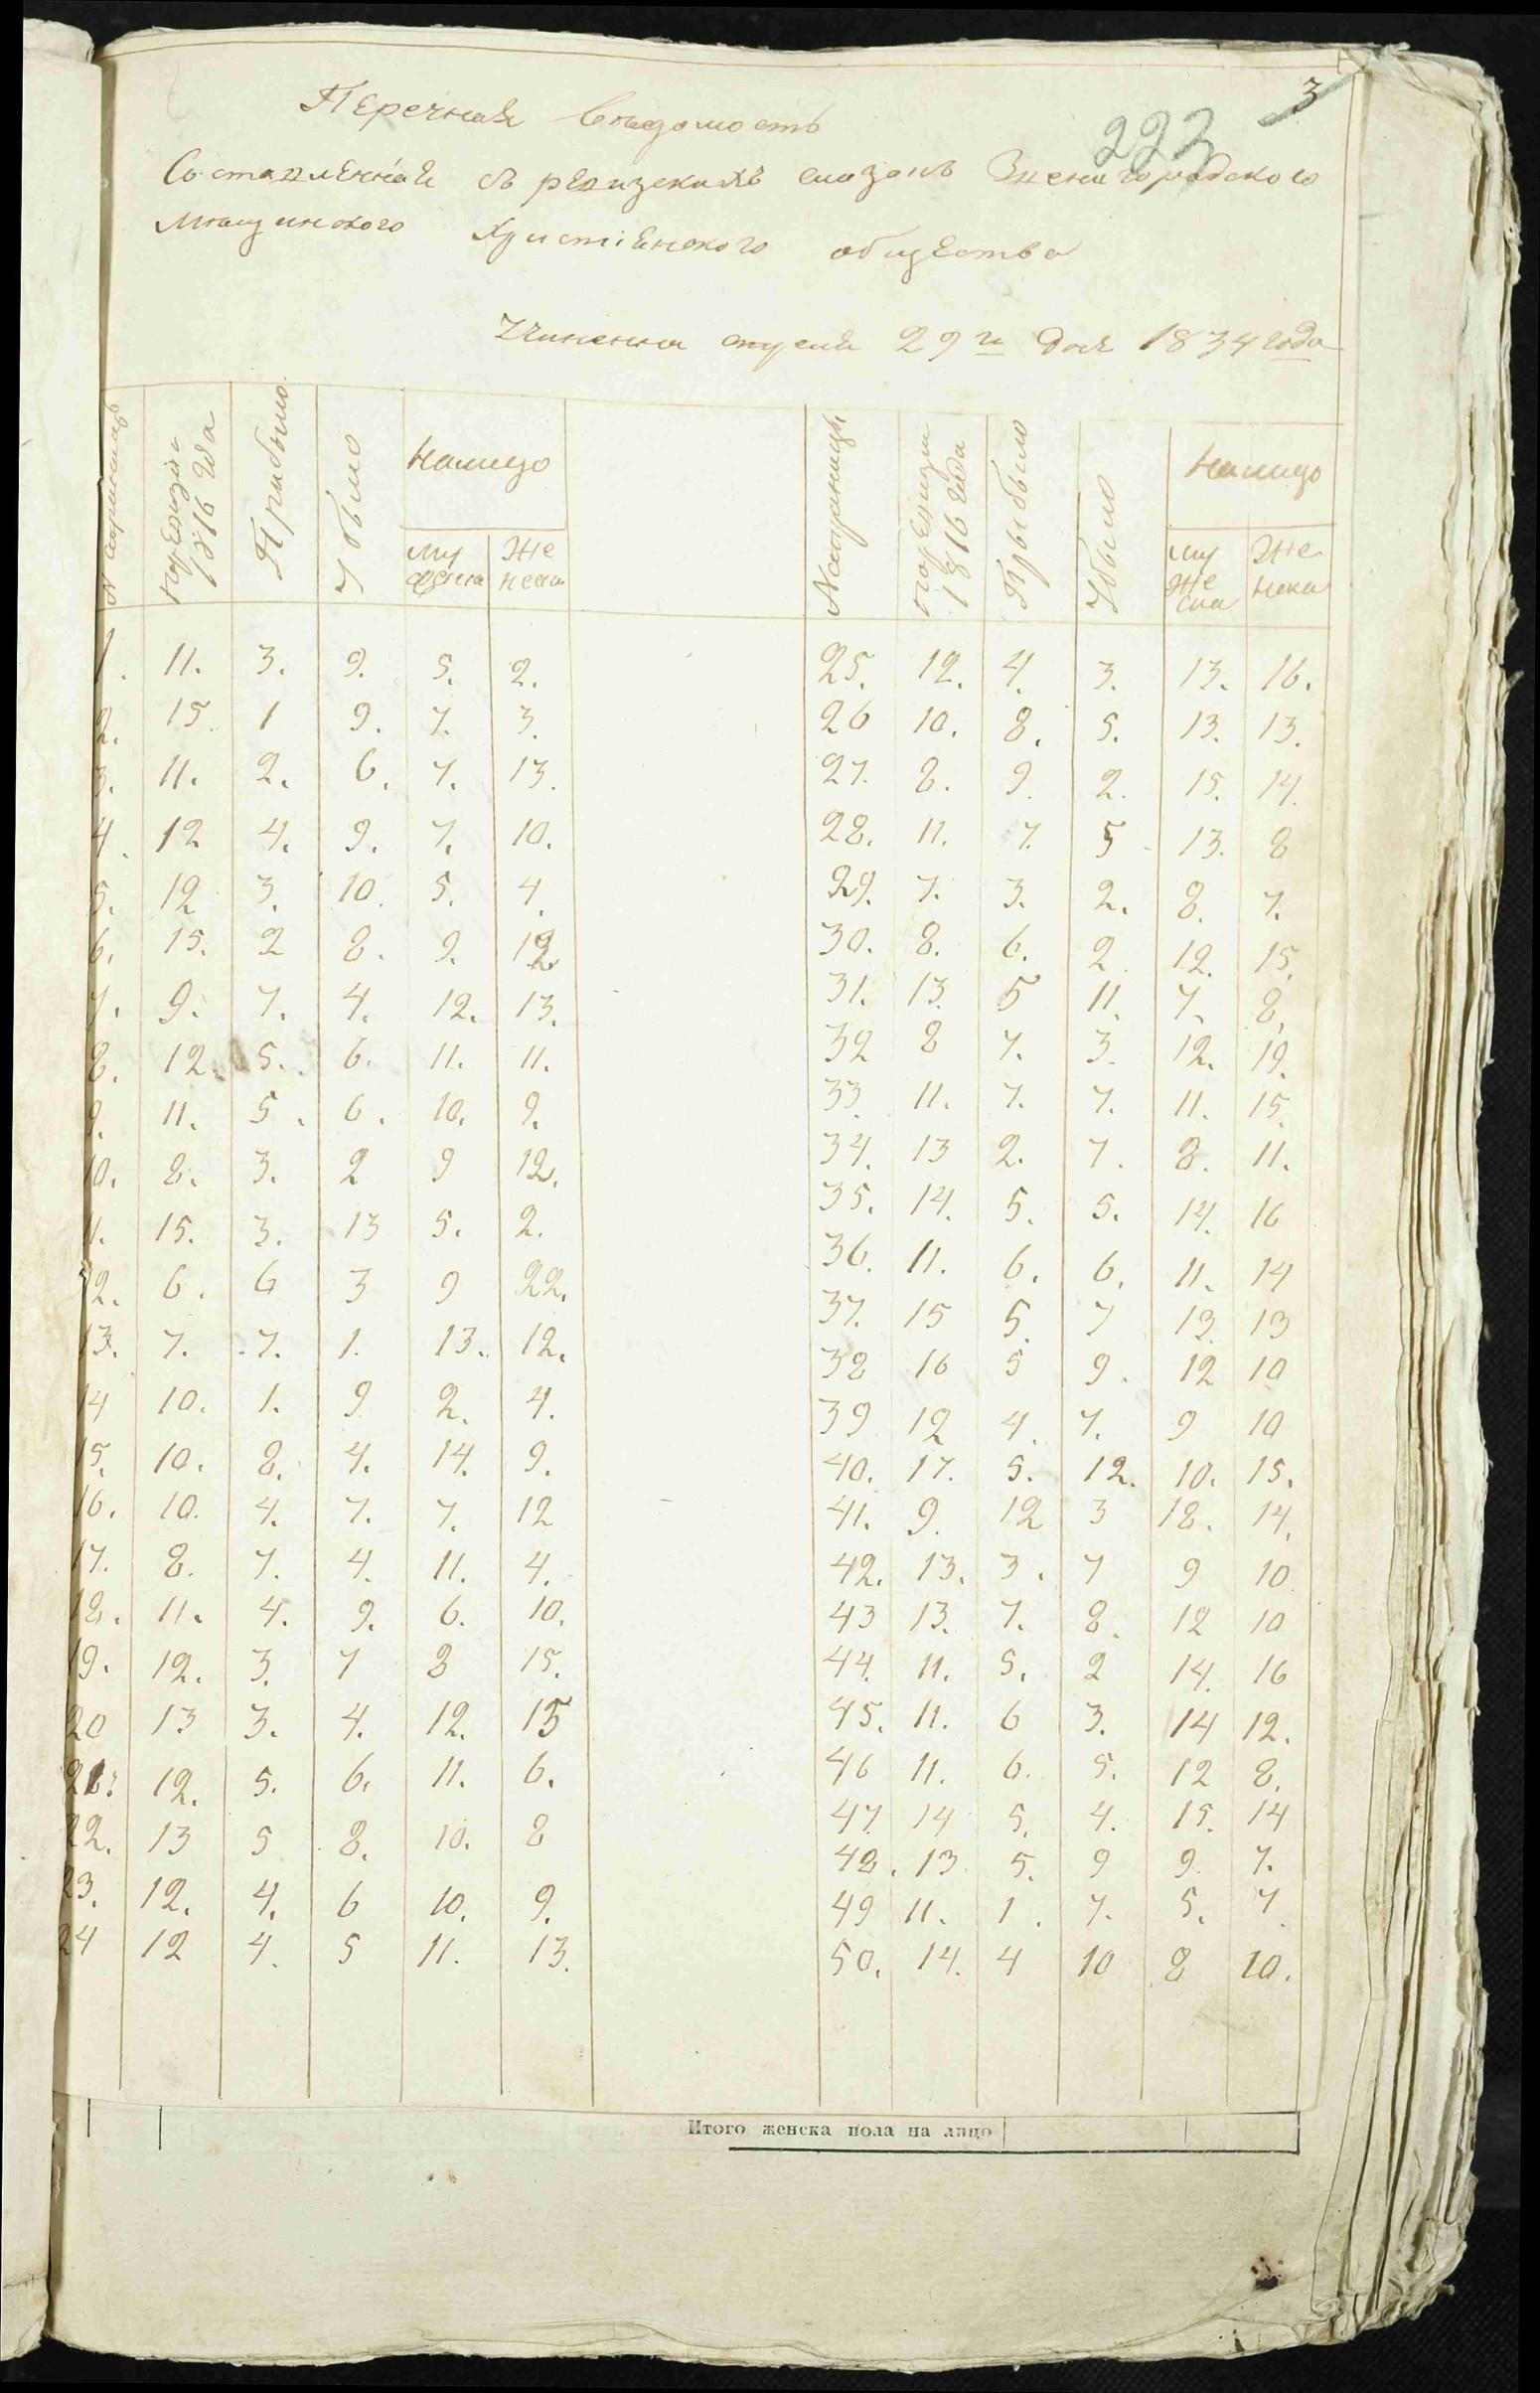 3
223
Перечная Ведомость
Составленная съ ревизскихъ сказокъ Звенигородского
Мещанского Христiенского общества
29го дня 1834 года
№ страницъ | по ревизiи 1816 года | Прибыло | Убыло | Налицо | № страницъ | по ревизiи 1816 года | Прыбыло | Убыло | Налицо
Же нска | му же ска | Же нска
1. 11. 3. 9. 5. 2. 25. 12. 4. 3. 13. 16.
2. 15. 1 9. 7. 3. 26 10. 8. 5. 13. 13.
3. 11. 2. 6. 7. 13. 27. 8. 9. 2. 15. 14.
4. 12 4. 9. 7. 10. 28. 11. 7. 5 13. 8
5. 12 3. 10. 5. 4. 29. 7. 3. 2. 8. 7.
6. 15. 2 8. 9. 12 30. 8. 6. 2 12. 15.
7. 9. 7. 4. 12. 13. 31. 13. 5 11. 7. 8.
8. 12. 5. 6. 11. 11. 32 8 7. 3. 12. 19.
9. 11. 5. 6. 10. 9. 33. 11. 7. 7. 11. 15.
10. 8. 3. 2 9 12. 34. 13 2. 7. 8. 11.
11. 15. 3. 13 5. 2. 35. 14. 5. 5. 14. 16
12. 6. 6 3 9 22. 36. 11. 6. 6. 11. 14
13. 7. 7. 1. 13. 12. 37. 15 5. 7 13. 13
14 10. 1. 9 2. 4. 38 16 5 9. 12 10
15. 10. 8. 4. 14. 9. 39 12 4. 7. 9 10
16. 10. 4. 7. 7. 12 40. 17. 5. 12. 10. 15.
17. 8. 7. 4. 11. 4. 41. 9. 12 3 18. 14.
18. 11. 4. 9. 6. 10. 42. 13. 3. 7 9 10
19. 12. 3. 7 8 15. 43 13. 7. 8. 12 10
20 13 3. 4. 12. 15 44. 11. 5. 2 14. 16
21. 12. 5. 6. 11. 6. 45. 11. 6 3. 14 12.
22. 13 5 8. 10. 8 46 11. 6. 5. 12 8.
23. 12. 4. 6 10. 9. 47 14 5. 4. 15. 14
24 12 4. 5 11. 13. 48. 13. 5. 9 9. 7.
49 11. 1. 7. 5. 7.
50. 14. 4 10 8 10.
Итого женска пола на лицо